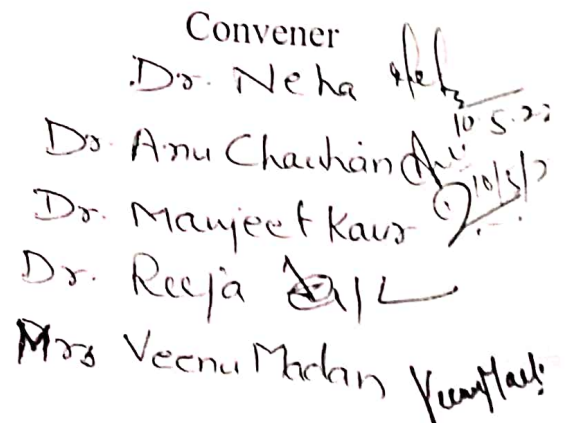 Convener
Dr. Neha
10.5.22
Dr. Anu Chauhan
10/5/2
Dr. Manjeet Kaur
Dr. Reeja
Mrs Veenu Madan